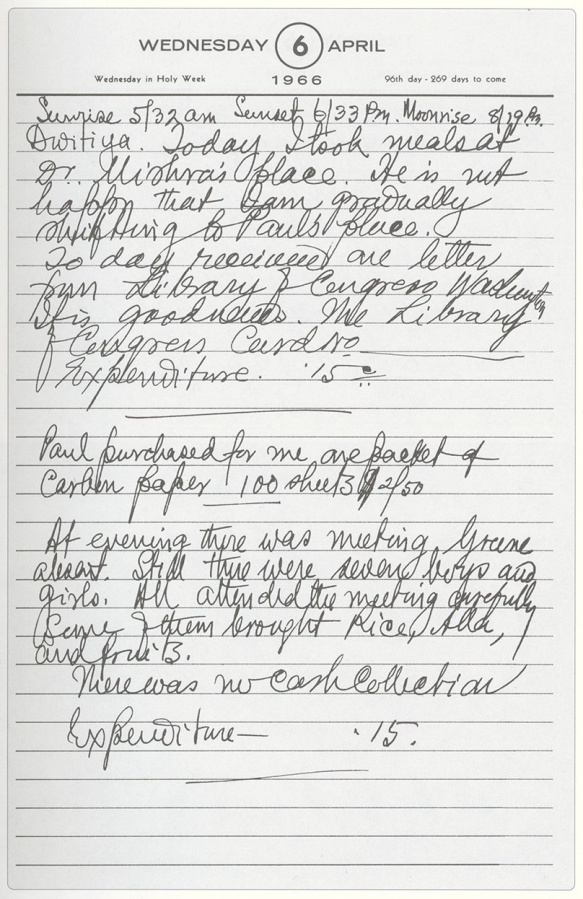 WEDNESDAY 6 APRIL
Wednesday in Holy Week 1966 96th day - 269 days to come
Sunrise 5/32 am Sunset 6/33 Pm. Moonrise 8/19 Pm.
Dwitiya. Today I took meals at
Dr. Mishra's place. He is not
happy that I am gradually
shifting to Paul's place.
To day received one letter
from Library of Congress Washington
It is good news. The Library
of Congress Card No
Expenditure. .15
Paul purchased for me one packet of
Carbon paper 100 sheets $ 2/50
At evening there was meeting. Greene
absent. Still there were seven boys and
girls. All attended the meeting carefully
Some of them brought Rice, Atta,
and fruits.
There was no cash Collection
Expenditure— .15.